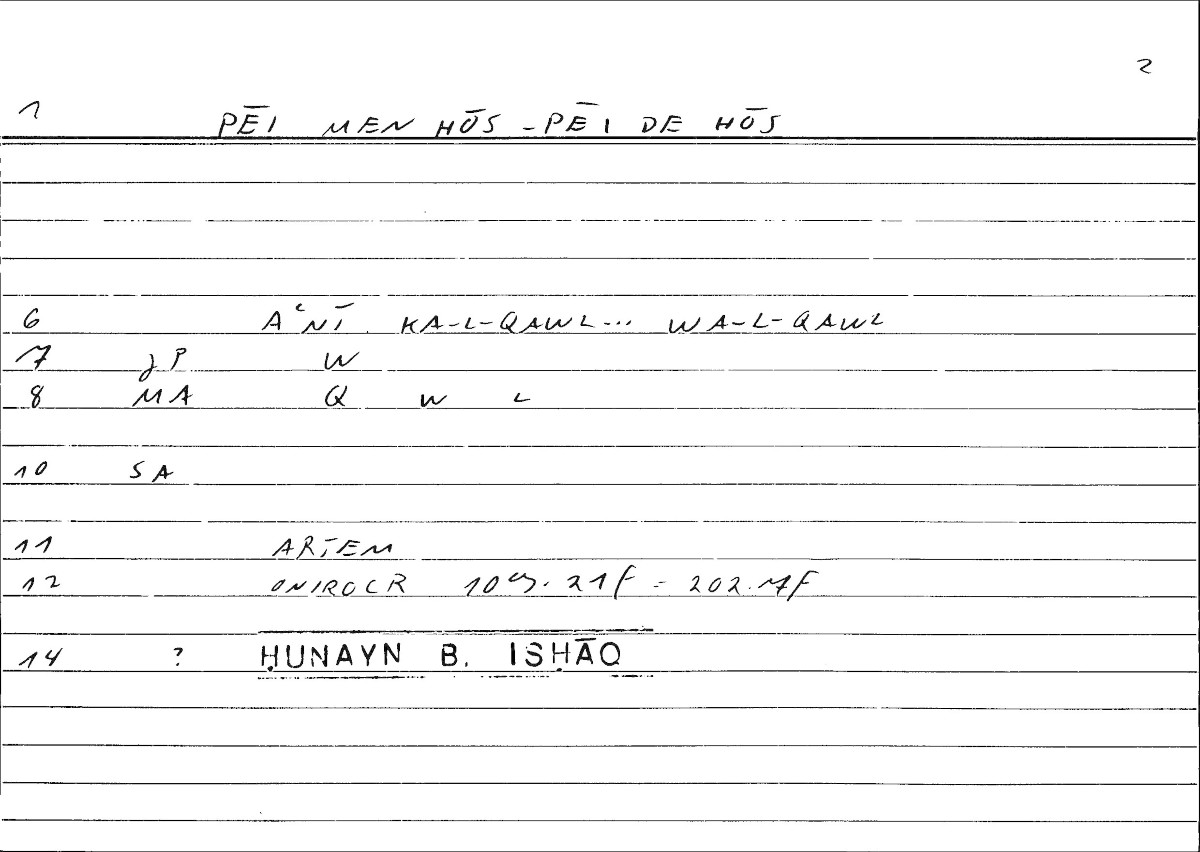 2
1 PĒI MEN HŌS - PĒI DE HŌS
6 AʿNĪ KA-L-QAWL... WA-L-QAWL
7 JP W
8 MA Q W L
10 SA
11 ARTEM
12 ONIROCR 109. 21f = 202.17f
14 ? ḤUNAYN B. ISḤĀQ